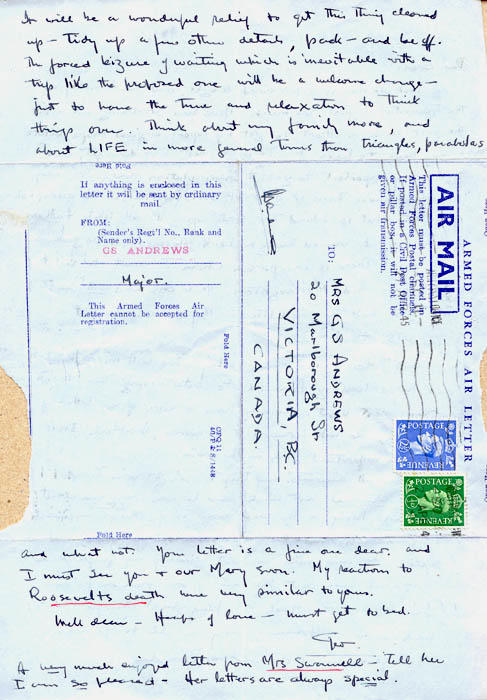 It will be a wonderful relief to get this thing cleaned
up - tidy up a few other details, pack - and be off.
The forced leizure of waiting which is inevitable with a
trip like the proposed one will be a welcome change -
just to have the time and relaxation to think
things over. Think about my family more, and
about LIFE in more general terms than triangles, parabolas
Fold Here
If anything is enclosed in this
letter it will be sent by ordinary
mail.
FROM:
(Sender's Reg'l No., Rank and
Name only).
GS ANDREWS
Major.
This Armed Forces Air
Letter cannot be accepted for
registration.
Fold Here
ARMED FORCES AIR LETTER
AIR MAIL
This letter must be posted in
Armed Forces Postal channels.
If posted in a Civil Post Office
or pillar box it will not be
given air transmission.
TO:
MRS GS ANDREWS
20 Marlborough St
VICTORIA, BC.
CANADA.
POSTAGE
REVENUE
POSTAGE
REVENUE
Fold Here
and what not. Your letter is a fine one dear, and
I must see you & our Mary soon. My reaction to
Roosevelts death were very similar to yours.
Well dear - Heaps of love - must get to bed.
A very much enjoyed letter from Mrs Swannell - Tell her
I am so pleased - Her letters are always special.